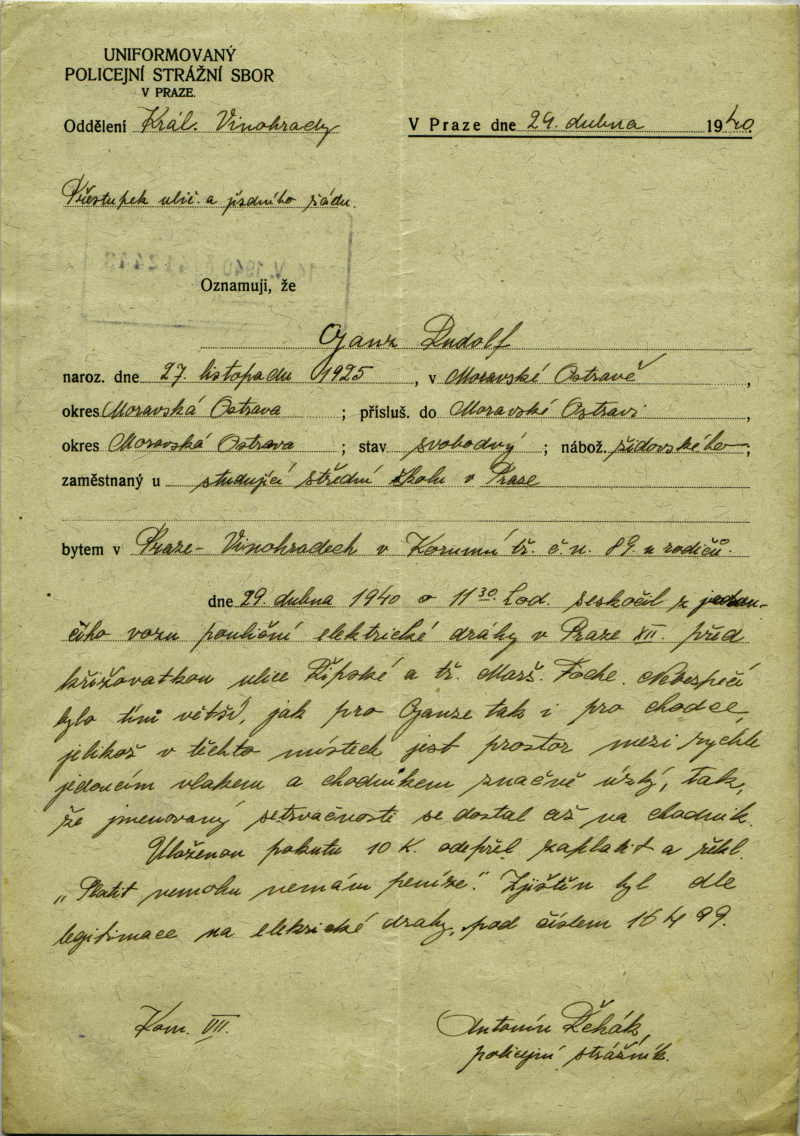 UNIFORMOVANÝ
POLICEJNÍ STRÁŽNÍ SBOR
V PRAZE.
Oddělení Král. Vinohrady
V Praze dne 29. dubna 1940.
Přestupek ulič. a jízdního řádu.
Oznamuji, že
Ganz Rudolf
naroz. dne 27. listopadu 1925, v Moravské Ostravě,
okres Moravská Ostrava; přísluš. do Moravské Ostravi,
okres Moravská Ostrava; stav svobodný; nábož. židovského;
zaměstnaný u studující střední školu v Praze
bytem v Praze - Vinohradech v Korunní tř. č. n. 89. u rodičů.
dne 29. dubna 1940 o 11 30. hod. seskočil z jedou-
cího vozu pouliční elektrické dráhy v Praze XII. před
křižovatkou ulice Řípské a tř. Marš. Foche. Nebezpečí
bylo tím větší, jak pro Ganze tak i pro chodce,
jelikož v těchto místech jest prostor mezi rychle
jedoucím vlakem a chodníkem značně úzký, tak,
že jmenovaný setrvačností se dostal až na chodník.
Uloženou pokutu 10 K. odepřel zaplatit a řekl.
„Platit nemohu nemám peníze." Zjištěn byl dle
legitimace na elektrické drahy, pod číslem 16499.
Kom. VII.
Antonín Řehák,
policejní strážník.